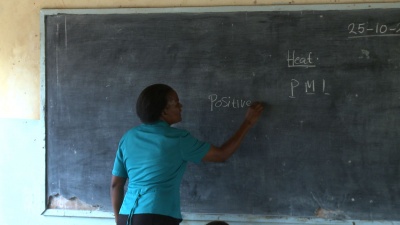 25-10-2
Heat.
P M I
Positive